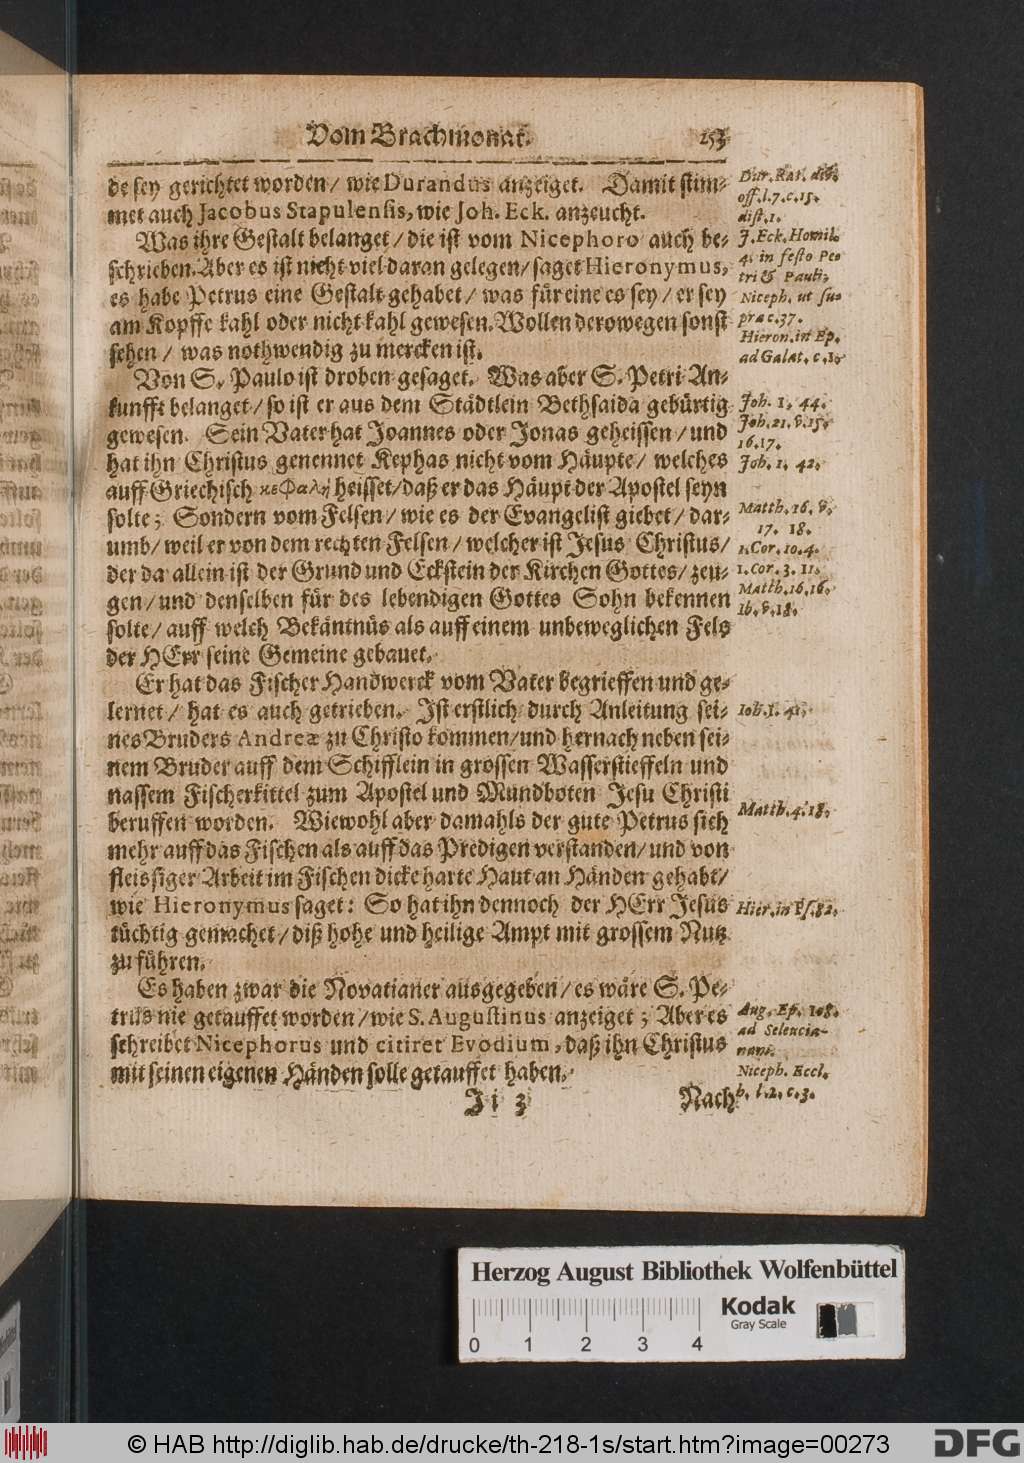 Vom Brachmonat. 253
de sey gerichtet worden/ wie Durandus anzeiget. Damit stim-
met auch Jacobus Stapulensis, wie Joh. Eck. anzeucht.
Was ihre Gestalt belanget/ die ist vom Nicephoro auch be-
schrieben. Aber es ist nicht viel daran gelegen/ saget Hieronymus,
es habe Petrus eine Gestalt gehabet/ was für eine es sey/ er sey
am Kopffe kahl oder nicht kahl gewesen. Wollen derowegen sonst
sehen/ was nothwendig zu mercken ist.
Von S. Paulo ist droben gesaget. Was aber S. Petri An-
kunfft belanget/ so ist er aus dem Städtlein Bethsaida gebürtig
gewesen. Sein Vater hat Joannes oder Jonas geheissen/ und
hat ihn Christus genennet Kephas nicht vom Häupte/ welches
auff Griechisch κεφαλὴ heisset/ daß er das Häupt der Apostel seyn
solte; Sondern vom Felsen/ wie es der Evangelist giebet/ dar-
umb/ weil er von dem rechten Felsen/ welcher ist Jesus Christus/
der da allein ist der Grund und Eckstein der Kirchen Gottes/ zeu-
gen/ und denselben für des lebendigen Gottes Sohn bekennen
solte/ auff welch Bekäntnüs als auff einem unbeweglichen Fels
der HErr seine Gemeine gebauet.
Er hat das Fischer Handwerck vom Vater begrieffen und ge-
lernet/ hat es auch getrieben. Ist erstlich durch Anleitung sei-
nes Bruders Andreæ zu Christo kommen/ und hernach neben sei-
nem Bruder auff dem Schifflein in grossen Wasserstieffeln und
nassem Fischerkittel zum Apostel und Mundboten Jesu Christi
beruffen worden. Wiewohl aber damahls der gute Petrus sich
mehr auff das Fischen als auff das Predigen verstanden/ und von
fleissiger Arbeit im Fischen dicke harte Haut an Händen gehabt/
wie Hieronymus saget: So hat ihn dennoch der HErr Jesus
tüchtig gemachet/ diß hohe und heilige Ampt mit grossem Nutz
zu führen.
Es haben zwar die Novatianer ausgegeben/ es wäre S. Pe-
trus nie getauffet worden/ wie S. Augustinus anzeiget; Aber es
schreibet Nicephorus und citiret Evodium, daß ihn Christus
mit seinen eigenen Händen solle getauffet haben.
Ji 3 Nach
Dur. Rat. div.
off. l. 7. c. 15.
dist. 1.
J. Eck. Homil.
4. in festo Pe-
tri & Pauli.
Niceph. ut su-
pra c. 37.
Hieron. in Ep.
ad Galat. c. 1.
Joh. 1. 44.
Joh. 21. v. 15.
16. 17.
Joh. 1. 42.
Matth. 16. v.
17. 18.
1. Cor. 10. 4.
1. Cor. 3. 11.
Matth. 16. 16.
Ib. v. 18.
Joh. 1. 41.
Matth. 4. 18.
Hier. in Ps. 82.
Aug. Ep. 108.
ad Seleucia-
nam.
Niceph. Eccl.
h. l. 2. c. 3.
Herzog August Bibliothek Wolfenbüttel
Kodak
Gray Scale
0 1 2 3 4
© HAB http://diglib.hab.de/drucke/th-218-1s/start.htm?image=00273
DFG